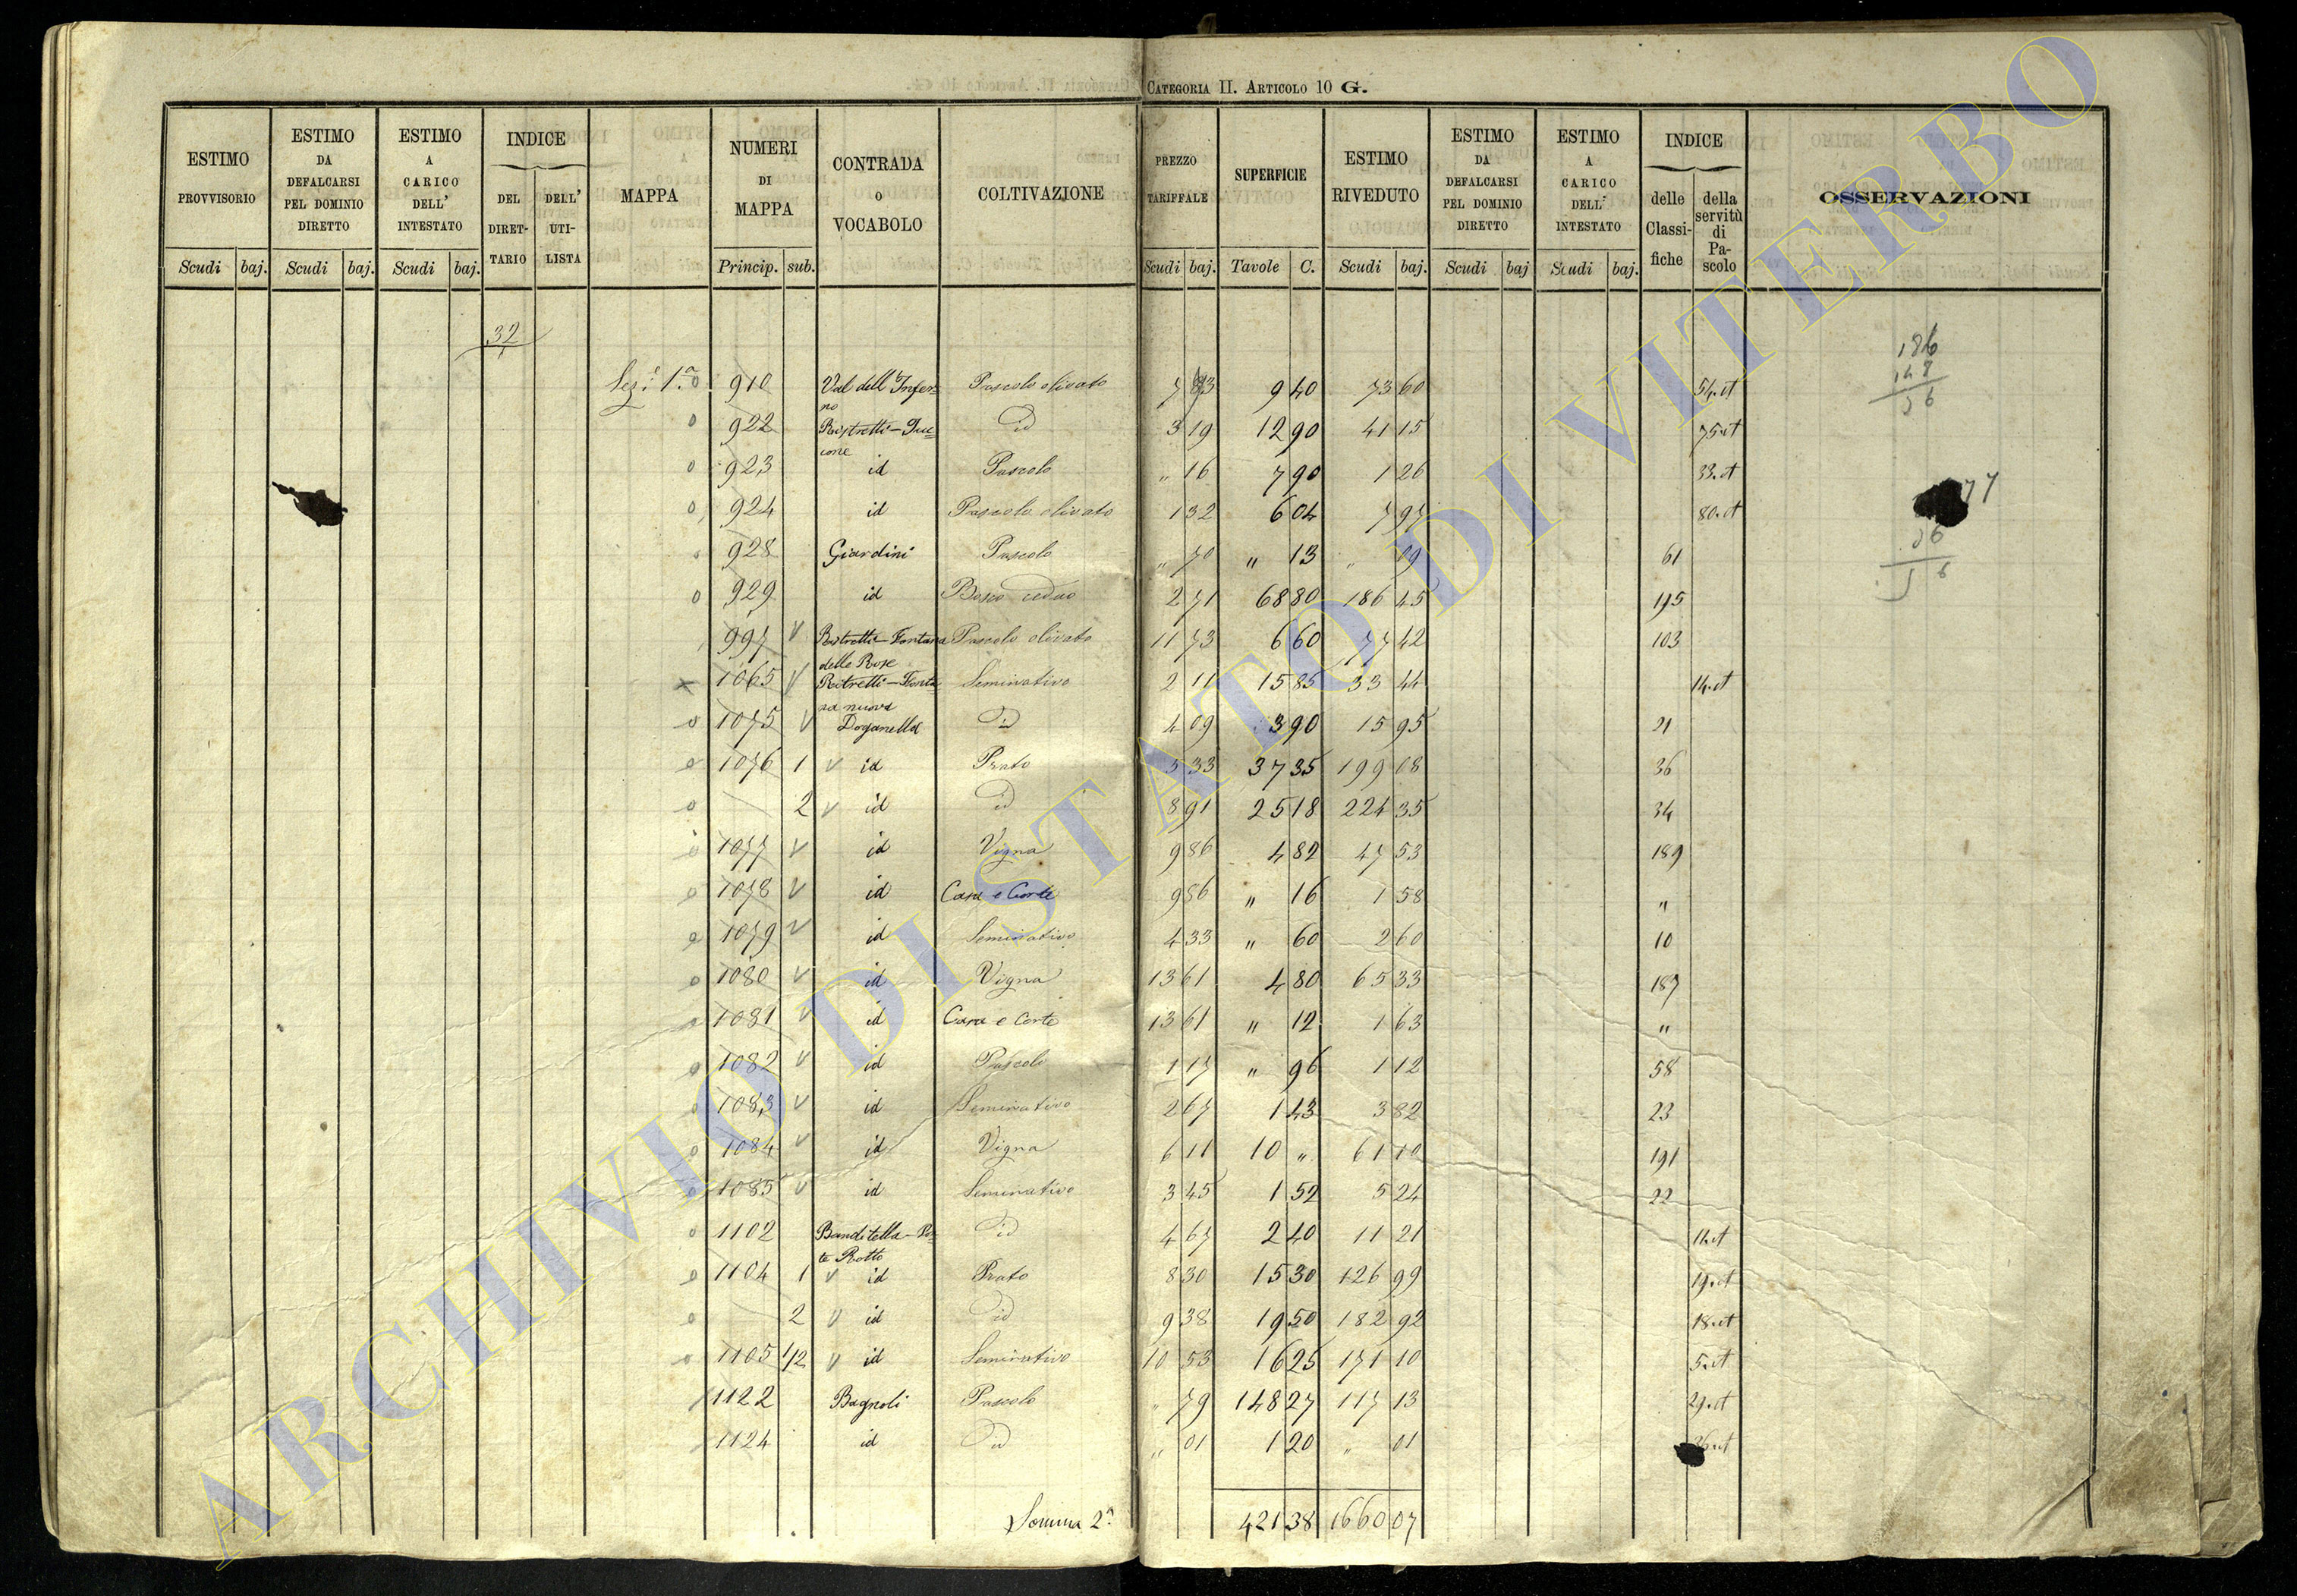 CATEGORIA II. ARTICOLO 10 G.
ESTIMO PROVVISORIO
ESTIMO DA DEFALCARSI PEL DOMINIO DIRETTO
ESTIMO A CARICO DELL' INTESTATO
INDICE
DEL DIRET-TARIO
DELL' UTI-LISTA
MAPPA
NUMERI DI MAPPA
CONTRADA o VOCABOLO
COLTIVAZIONE
PREZZO TARIFFALE
SUPERFICIE
ESTIMO RIVEDUTO
ESTIMO DA DEFALCARSI PEL DOMINIO DIRETTO
ESTIMO A CARICO DELL' INTESTATO
INDICE
delle Classi-fiche
della servitù di Pa-scolo
OSSERVAZIONI
Scudi baj. Scudi baj. Scudi baj. Princip. sub. Scudi baj. Tavole C. Scudi baj. Scudi baj Scudi baj.
32
Sez.e 1a o 910 Val dell'Infer= Pascolo olivato 7 83 9 40 73 60 54.et
no
o 922 Ristretti - Puc= id 3 19 12 90 41 15 75.et
cone
o 923 id Pascolo " 16 7 90 1 26 33.et
o 924 id Pascolo olivato 1 32 6 04 7 97 80.et
o 928 Giardini Pascolo " 70 " 13 " 09 61
o 929 id Bosco ceduo 2 71 68 80 186 45 195
997 V Ristretti - Fontana Pascolo olivato 11 73 6 60 77 42 103
delle Rose
x 1065 V Ristretti - Fonta Seminativo 2 11 15 85 33 44 14.et
na nuova
o 1075 V Doganella id 4 09 3 90 15 95 21
o 1076 1 V id Prato 5 33 37 35 199 08 36
o 2 V id id 8 91 25 18 224 35 34
o 1077 V id Vigna 9 86 4 82 47 53 189
o 1078 V id Casa e Corte 9 86 " 16 1 58 "
o 1079 V id Seminativo 4 33 " 60 2 60 10
o 1080 V id Vigna 13 61 4 80 65 33 187
o 1081 V id Casa e Corte 13 61 " 12 1 63 "
o 1082 V id Pascolo 1 17 " 96 1 12 58
o 1083 V id Seminativo 2 67 1 43 3 82 23
o 1084 V id Vigna 6 11 10 " 61 10 191
o 1085 V id Seminativo 3 45 1 52 5 24 22
o 1102 Banditella - Po= id 4 67 2 40 11 21 14.et
te Rotto
o 1104 1 V id Prato 8 30 15 30 126 99 19.et
o 2 V id id 9 38 19 50 182 92 18.et
o 1105 1/2 V id Seminativo 10 53 16 25 171 10 5.et
1122 Bagnoli Pascolo " 79 148 27 117 13 29.et
1124 id id " 01 1 20 " 01 36.et
Somma 2a 421 38 1660 07
186
148
77
ARCHIVIO DI STATO DI VITERBO